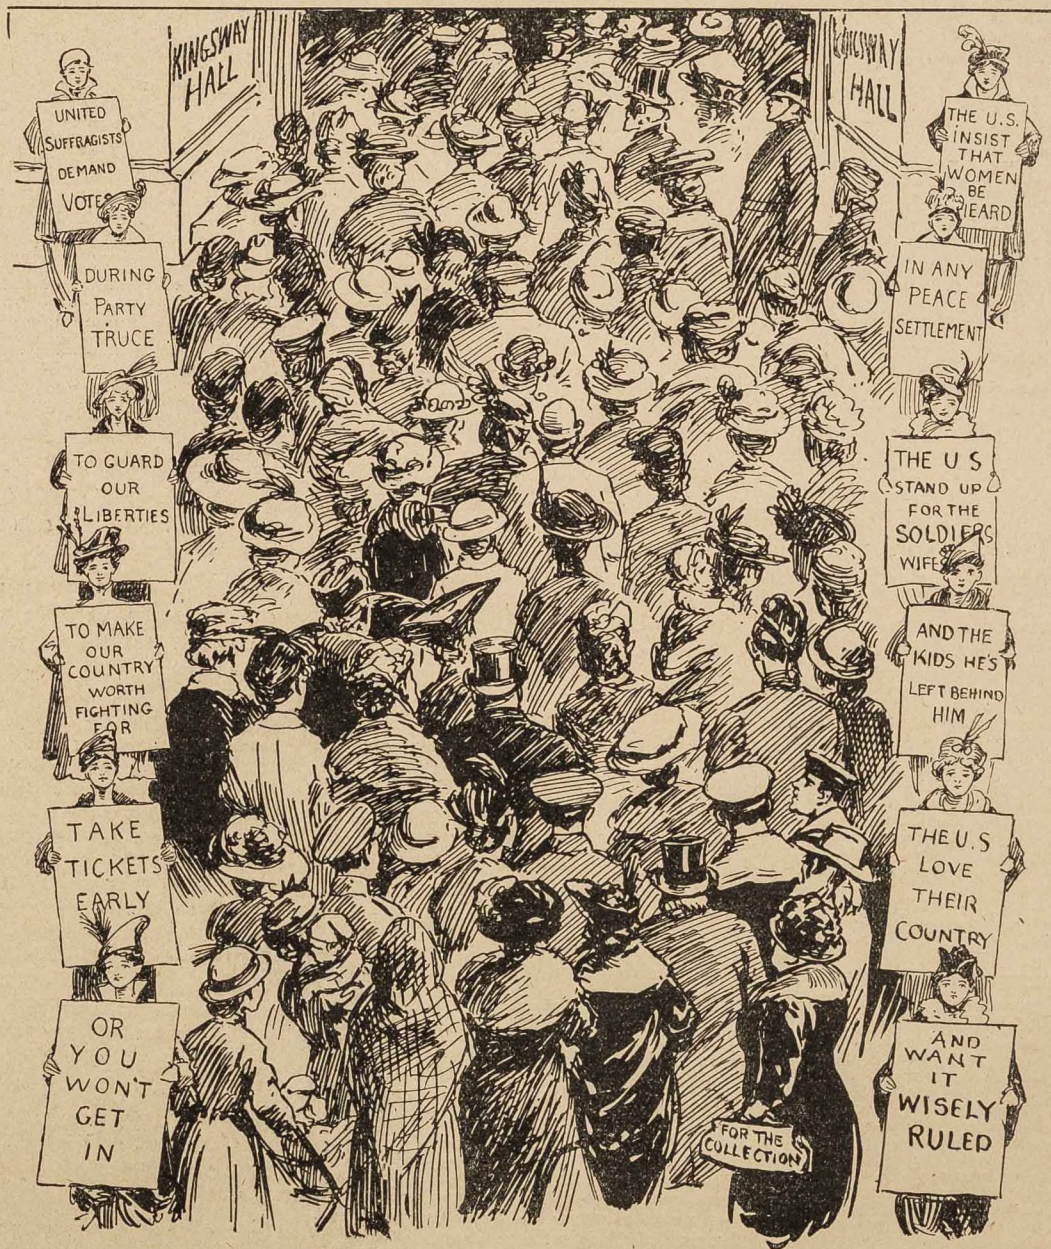 KINGSWAY
HALL
KINGSWAY
HALL
UNITED
SUFFRAGISTS
DEMAND
VOTES
DURING
PARTY
TRUCE
TO GUARD
OUR
LIBERTIES
TO MAKE
OUR
COUNTRY
WORTH
FIGHTING
FOR
TAKE
TICKETS
EARLY
OR
YOU
WON'T
GET
IN
THE U.S.
INSIST
THAT
WOMEN
BE
HEARD
IN ANY
PEACE
SETTLEMENT
THE U S
STAND UP
FOR THE
SOLDIERS
WIFE
AND THE
KIDS HE'S
LEFT BEHIND
HIM
THE U.S
LOVE
THEIR
COUNTRY
AND
WANT
IT
WISELY
RULED
FOR THE
COLLECTION